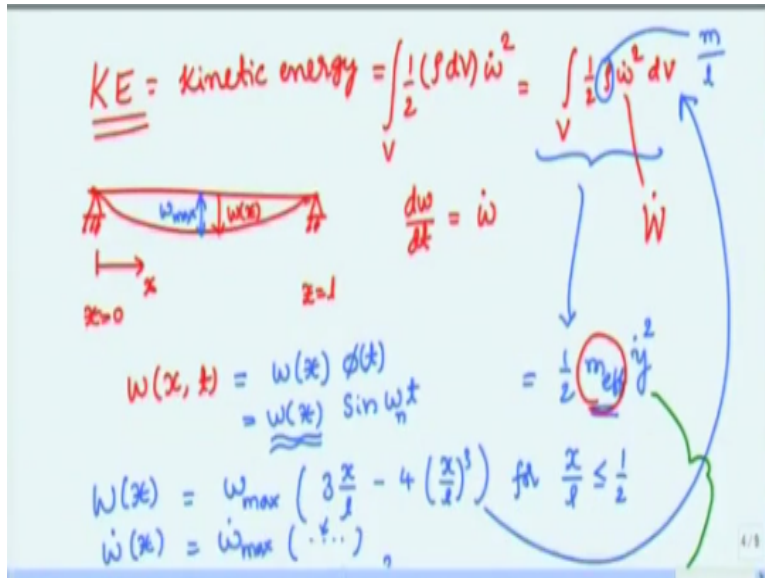 KE = kinetic energy = ∫_V 1/2 (ρdV) ẇ² = ∫_V 1/2 ρ ẇ² dV
m/l
w_max w(x)
dw/dt = ẇ
Ẇ
x
x=0
x=l
w(x, t) = w(x) φ(t)
= w(x) sin ω_n t
= 1/2 m_eff ẏ²
w(x) = w_max ( 3 x/l - 4 (x/l)³ ) for x/l ≤ 1/2
ẇ(x) = ẇ_max ( ...)
4/9